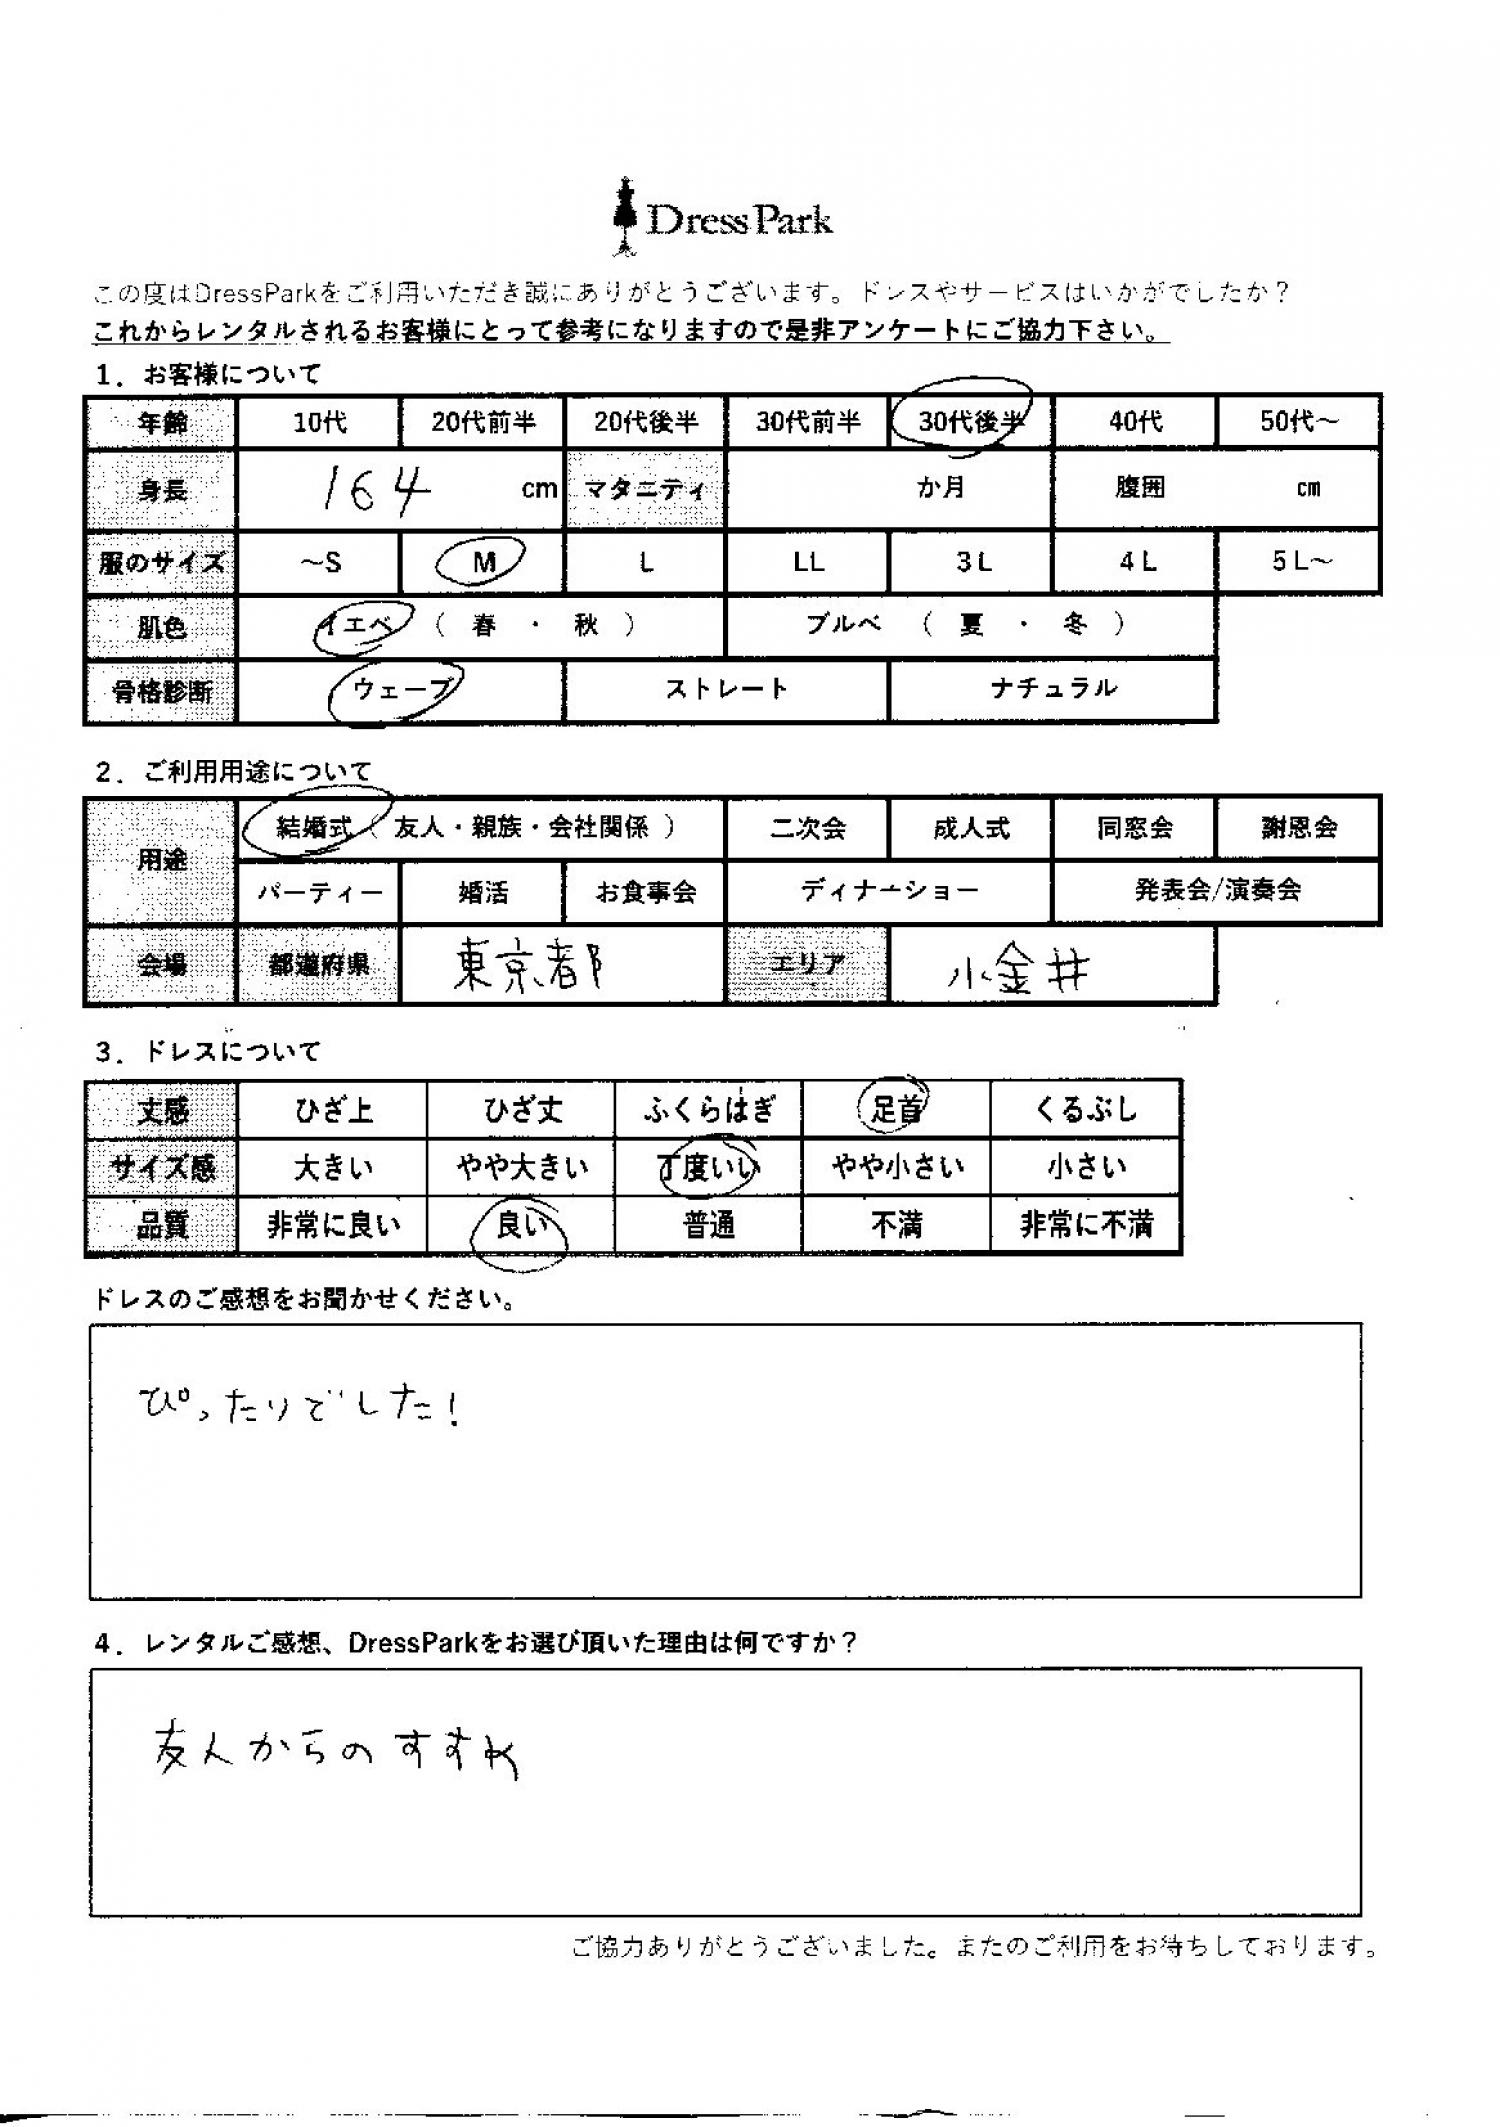 DressPark
この度はDressParkをご利用いただき誠にありがとうございます。ドレスやサービスはいかがでしたか？
これからレンタルされるお客様にとって参考になりますので是非アンケートにご協力下さい。
1．お客様について
年齢 10代 20代前半 20代後半 30代前半 30代後半 40代 50代～
身長 164 cm マタニティ か月 腹囲 cm
服のサイズ ～S M L LL 3L 4L 5L～
肌色 イエベ（ 春 ・ 秋 ） ブルベ （ 夏 ・ 冬 ）
骨格診断 ウェーブ ストレート ナチュラル
2．ご利用用途について
用途 結婚式（ 友人・親族・会社関係 ） 二次会 成人式 同窓会 謝恩会
パーティー 婚活 お食事会 ディナーショー 発表会/演奏会
会場 都道府県 東京都 エリア 小金井
3．ドレスについて
丈感 ひざ上 ひざ丈 ふくらはぎ 足首 くるぶし
サイズ感 大きい やや大きい 丁度いい やや小さい 小さい
品質 非常に良い 良い 普通 不満 非常に不満
ドレスのご感想をお聞かせください。
ぴったりでした！
4．レンタルご感想、DressParkをお選び頂いた理由は何ですか？
友人からのすすめ
ご協力ありがとうございました。またのご利用をお待ちしております。